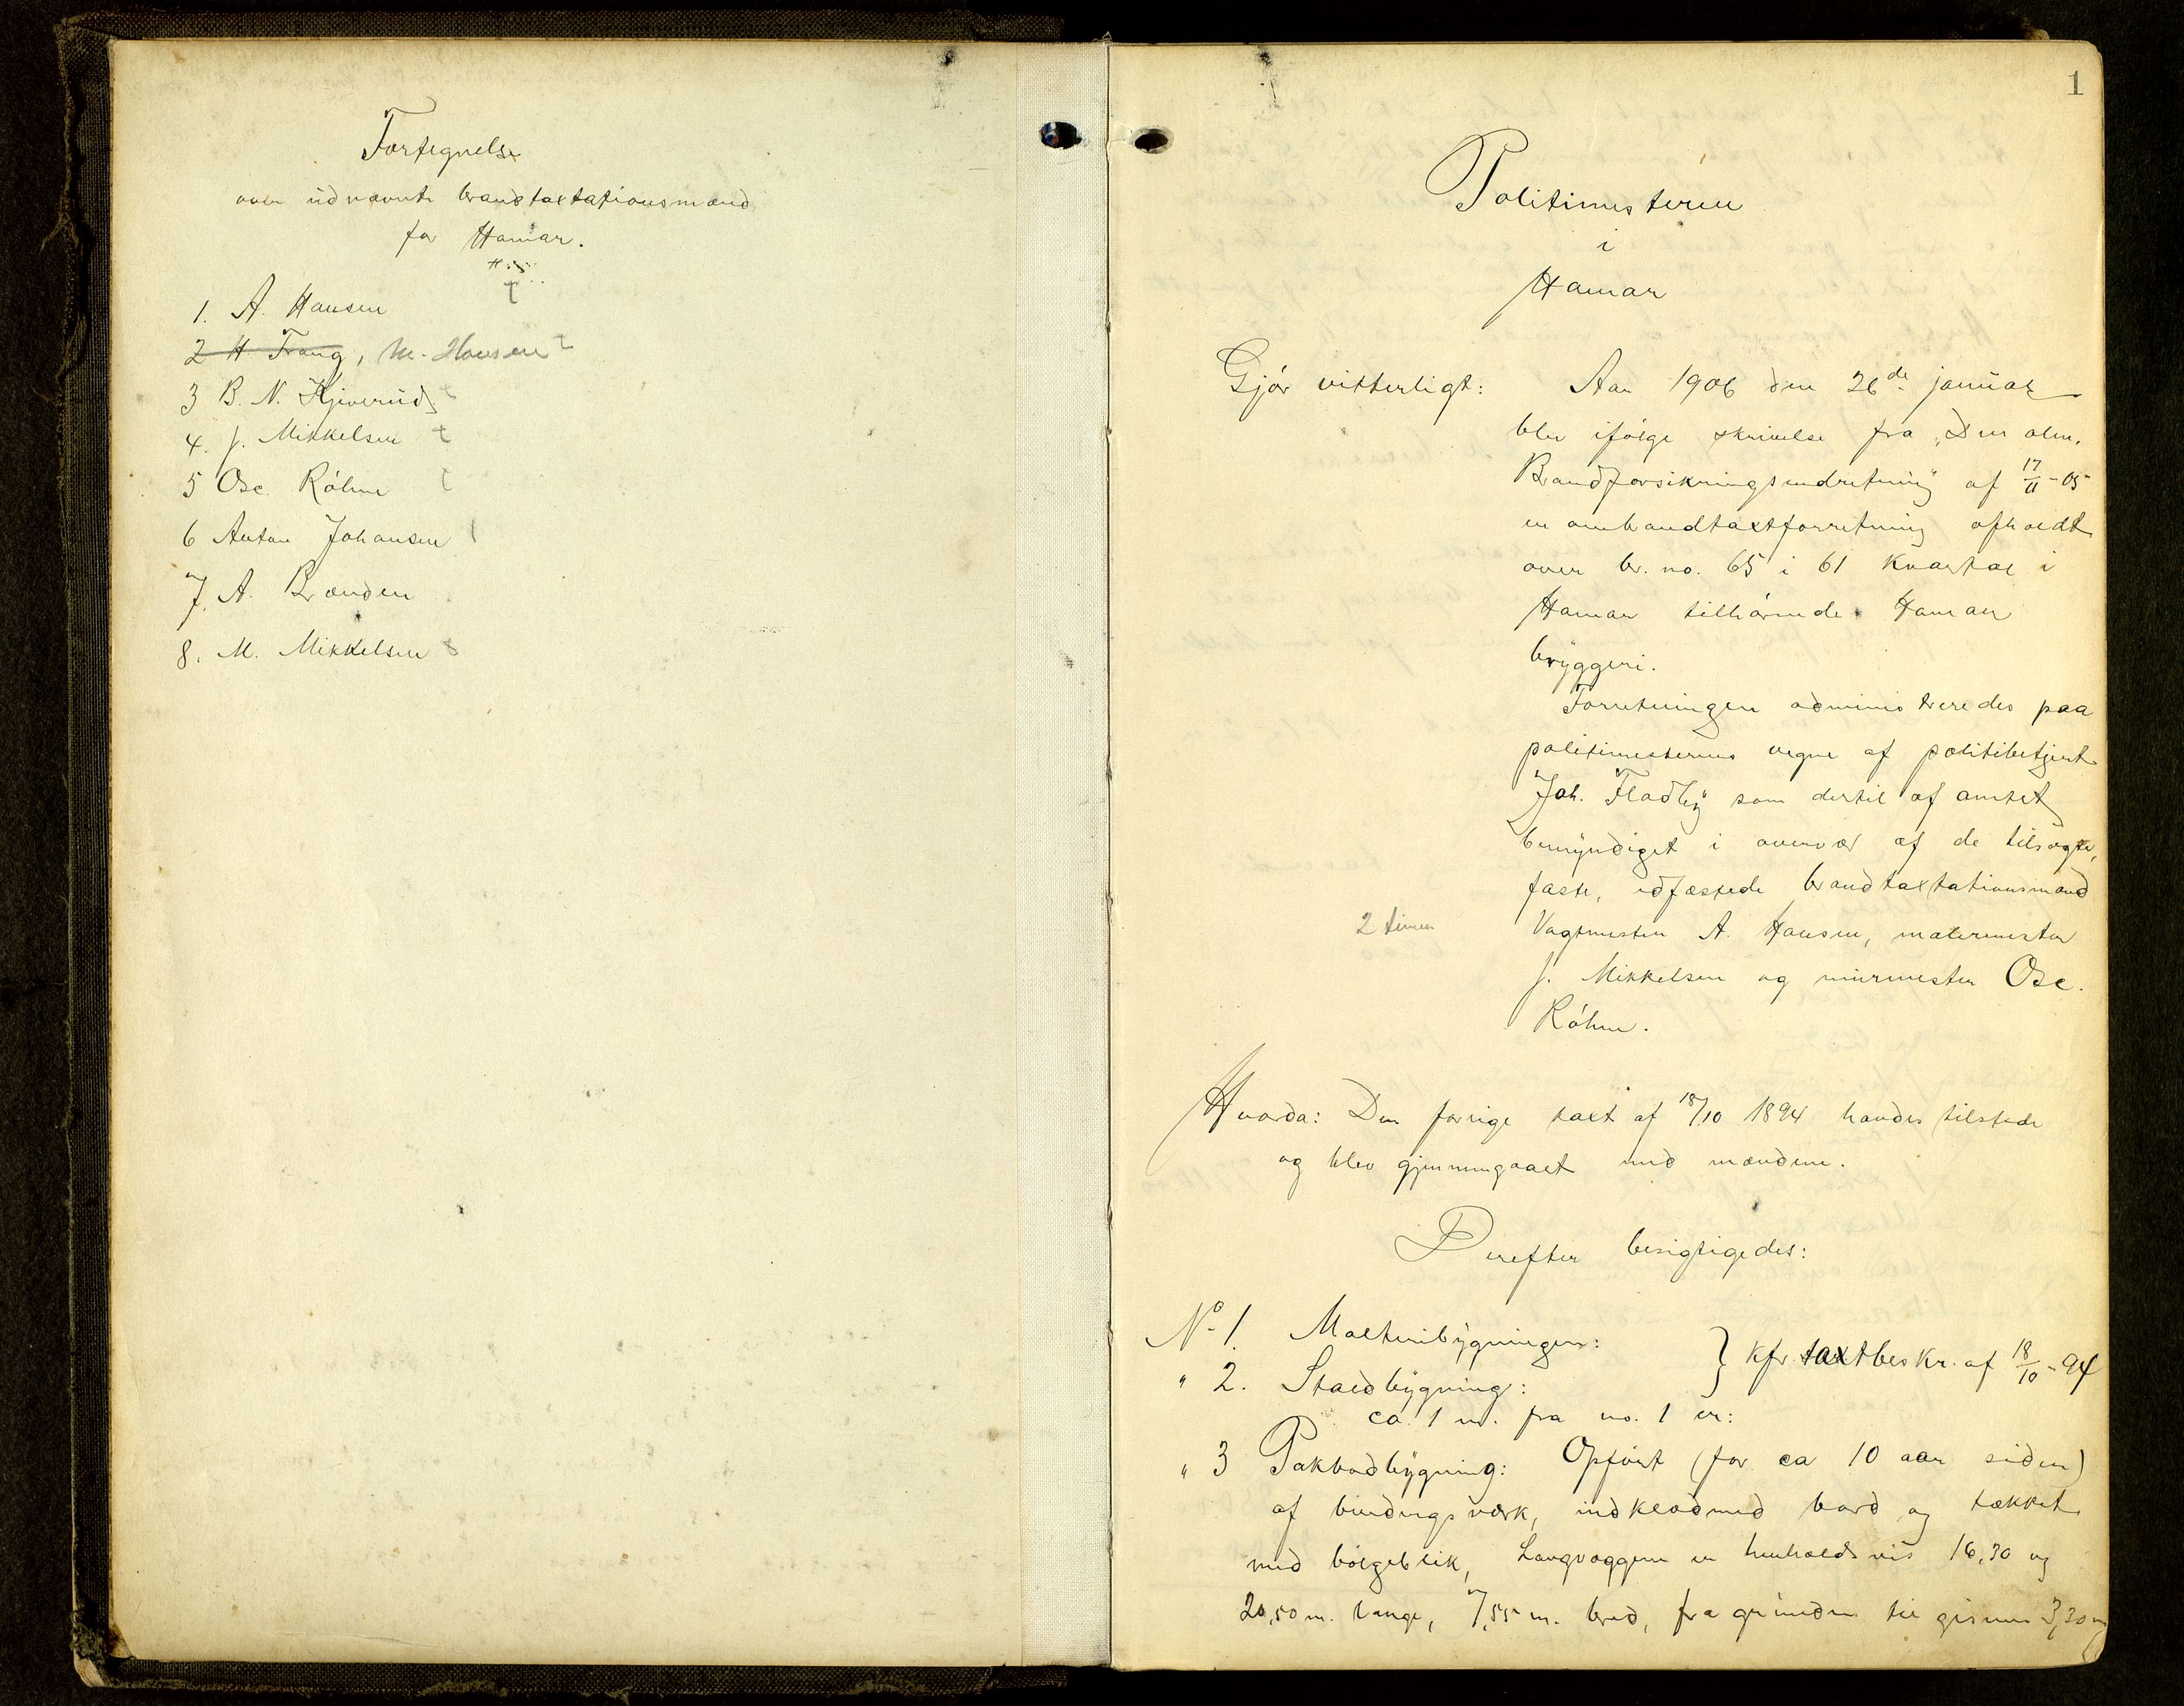 Fortegnelse
over udnævnte brandtaxtationsmænd
for Hamar.
1. A. Hansen
2 H. Frang, M. Hansen t
3 B. N. Kjiverud t
4. J. Mikkelsen t
5 Osc. Röhne t
6 Anton Johansen
7. A. Brenden
8. M. Mikkelsen
1
Politimesteren
i
Hamar
Gjør vitterligt: Aar 1906 den 26de januar
blev ifølge skrivelse fra "Den alm.
Brandforsikringsindretning" af 17/11-05
en ombrandtaxtforretning afholdt
over br. no. 65 i 61 kvartal i
Hamar tilhørende Hamar
bryggeri.
Forretningen administreredes paa
politimesterens vegne af politibetjent
Joh. Fladby som dertil af amtet
bemyndiget i overvær af de tilsagte,
faste, edfæstede brandtaxtationsmænd
2 timer
Vagtmester A. Hansen, malermester
J. Mikkelsen og murmester Osc.
Röhne.
Hvorda: Den forrige taxt af 18/10 1894 havdes tilstede
og blev gjennemgaaet med mændene.
Derefter besigtigedes:
No 1. Malteribygningen:
" 2. Staldbygning:
} kfr. taxtbeskr. af 18/10-94
ca. 1 m. fra no. 1 er:
" 3 Pakbodbygning: Opført (for ca 10 aar siden)
af bindingsværk, indklædmed bord og tækket
med bølgeblik, Langvæggene er henholdsvis 16,30 og
20,50 m. lange, 7,55 m. bred, fra grunden til gesims 3,30 m